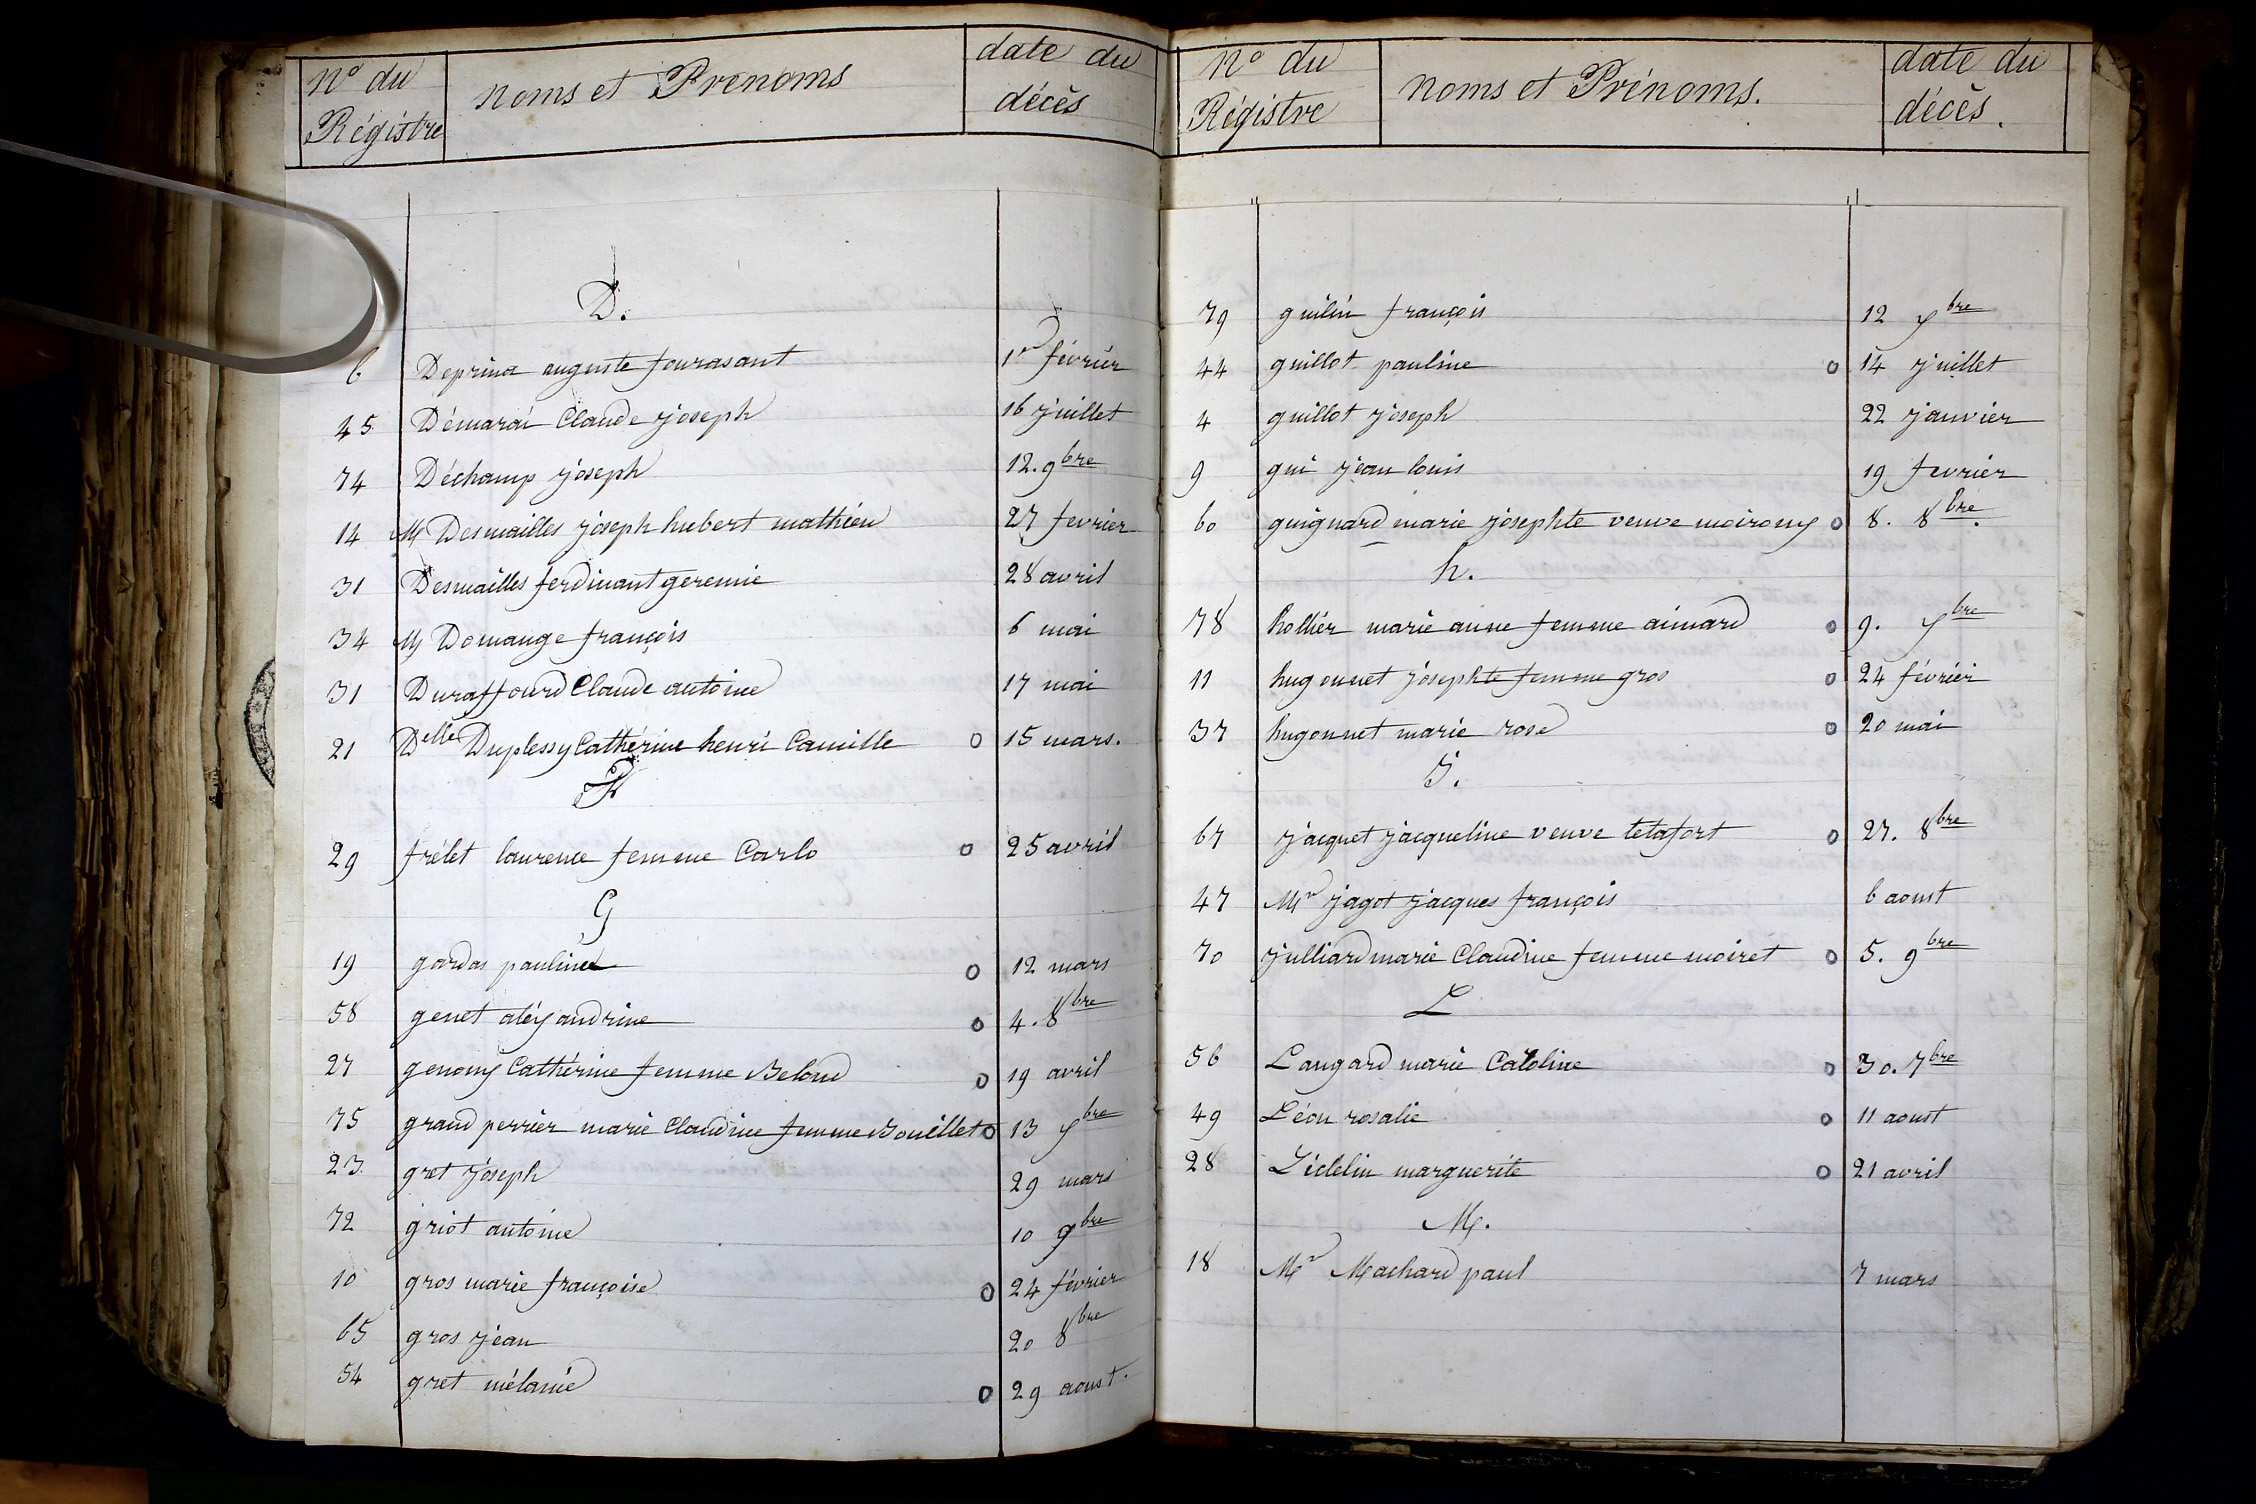 N° du Régistre noms et Prenoms date du décès
D.
6 Deprina auguste fourasant 1r février
45 Démarai Claude joseph 16 juillet
74 Déchamp joseph 12. 9bre
14 M Desmailles joseph hubert mathieu 27 fevrier
31 Desmailles ferdinant geremie 28 avril
34 M Domange françois 6 mai
31 Duraffourd Claude antoine 17 mai
21 Delle Duplessy Cathérine henri Camille o 15 mars.
F
29 frélet laurence femme Carlo o 25 avril
G
19 gardas pauline o 12 mars
58 genet aléxandrine o 4. 8bre
27 genomy Cathérine femme Beloud o 19 avril
75 grand perrier marie Claudine femme Bouillet o 13 xbre
23. gret joseph 29 mars
72 griot antoine 10 9bre
10 gros marie françoise o 24 février
65 gros jean 20 8bre
54 gret mélanie o 29 aoust.
N° du Régistre noms et Prénoms. date du décès.
79 guilin françois 12 xbre
44 guillot pauline o 14 juillet
4 guillot joseph 22 janvier
9 gui jean louis 19 fevrier
60 guignard marie josephte veuve moiromy o 8. 8bre.
h.
78 hollier marie anne femme aimard o 9. xbre
11 hugonnet josephte femme gros o 24 février
37 hugonnet marie rose o 20 mai
J.
67 jacquet jacqueline veuve tetafort o 27. 8bre
47 Mr jagot jacques françois 6 aoust
70 julliard marie Claudine femme moiret o 5. 9bre
L
56 Langard marie Caroline o 30. 7bre
49 Léon rosalie o 11 aoust
28 Lidelin marguerite o 21 avril
M.
18 Mr Machard paul 7 mars